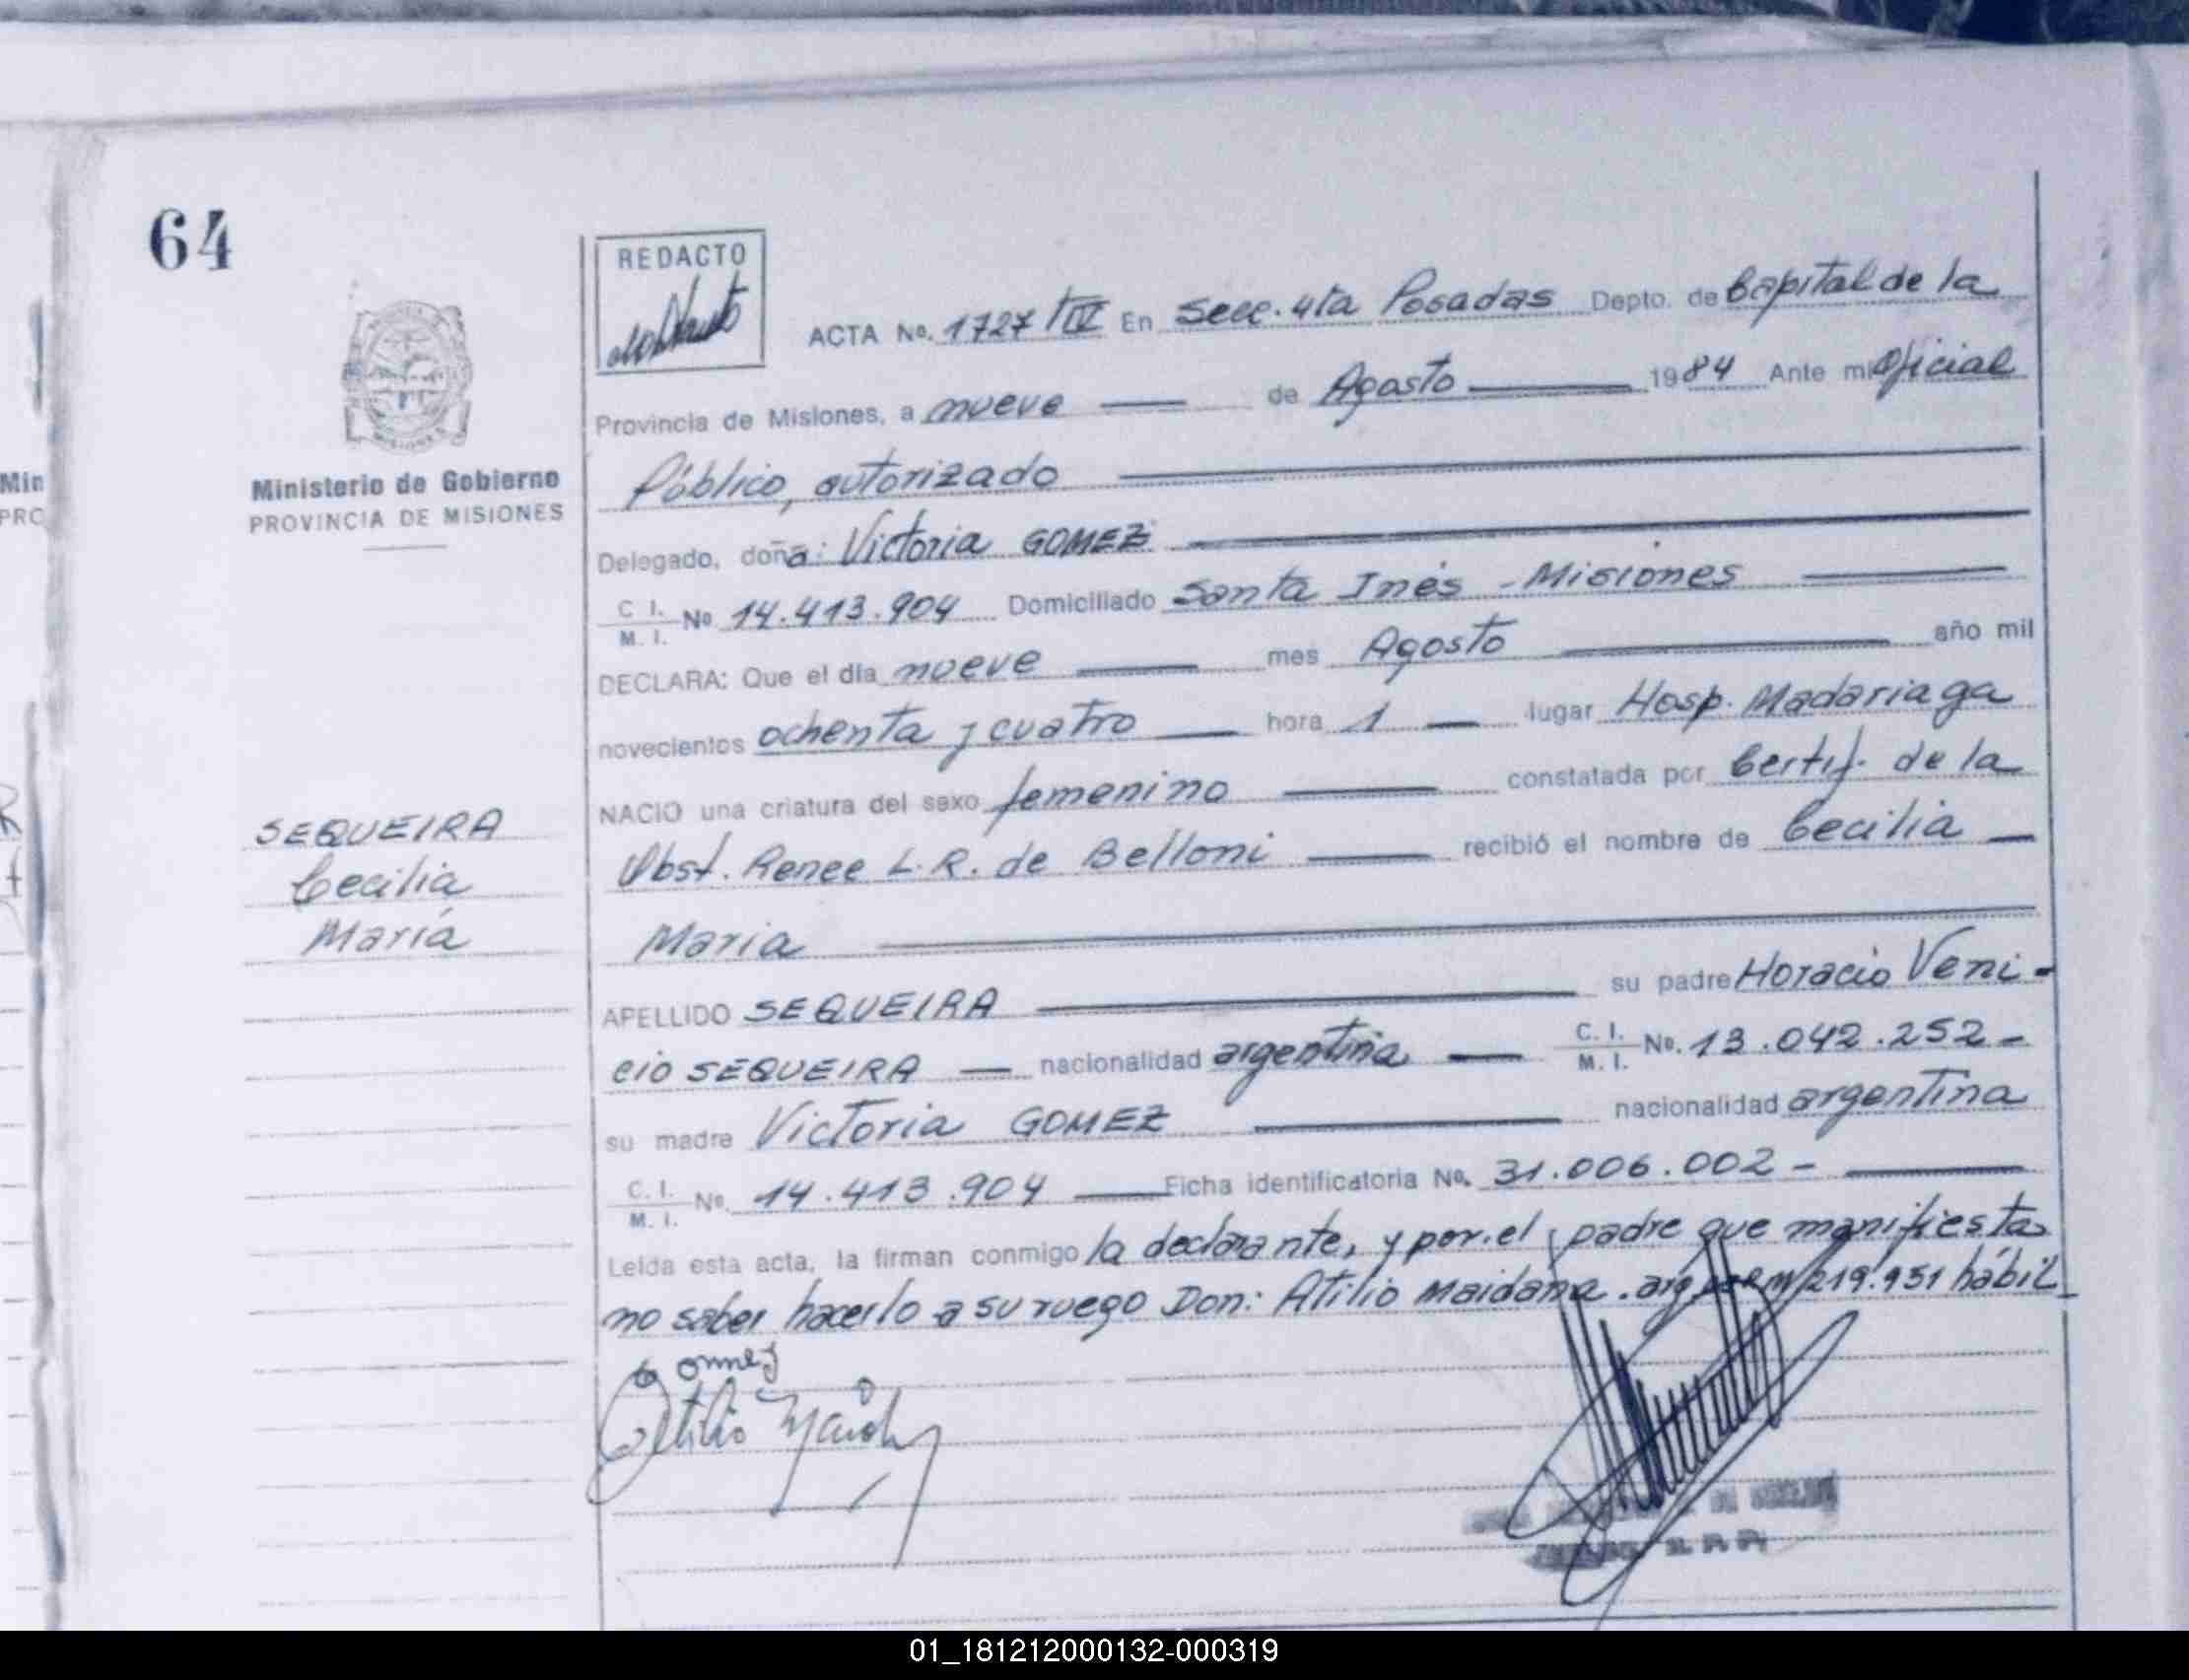 64
REDACTO
ACTA No. 1727/IV En Secc. 4ta Posadas Depto. de Capital de la
Provincia de Misiones, a nueve de Agosto 1984 Ante mi Oficial
Público, autorizado
Ministerio de Gobierno
PROVINCIA DE MISIONES
Delegado, doña: Victoria GOMEZ
C. I. M. I. No 14.413.904 Domiciliado Santa Inés - Misiones
DECLARA: Que el día nueve mes Agosto año mil
novecientos ochenta y cuatro hora 1 lugar Hosp. Madariaga
NACIO una criatura del sexo femenino constatada por Certif. de la
Obst. Renee L. R. de Belloni recibió el nombre de Cecilia
Maria
SEQUEIRA
Cecilia
María
APELLIDO SEQUEIRA su padre Horacio Veni-
cio SEQUEIRA nacionalidad argentina C. I. M. I. No. 13.042.252-
su madre Victoria GOMEZ nacionalidad argentina
C. I. M. I. No. 14.413.904 Ficha identificatoria No. 31.006.002-
Leída esta acta, la firman conmigo la declarante, y por el padre que manifiesta
no saber hacerlo a su ruego Don: Atilio Maidana. hábil
Atilio
Min
PRO
01_181212000132-000319